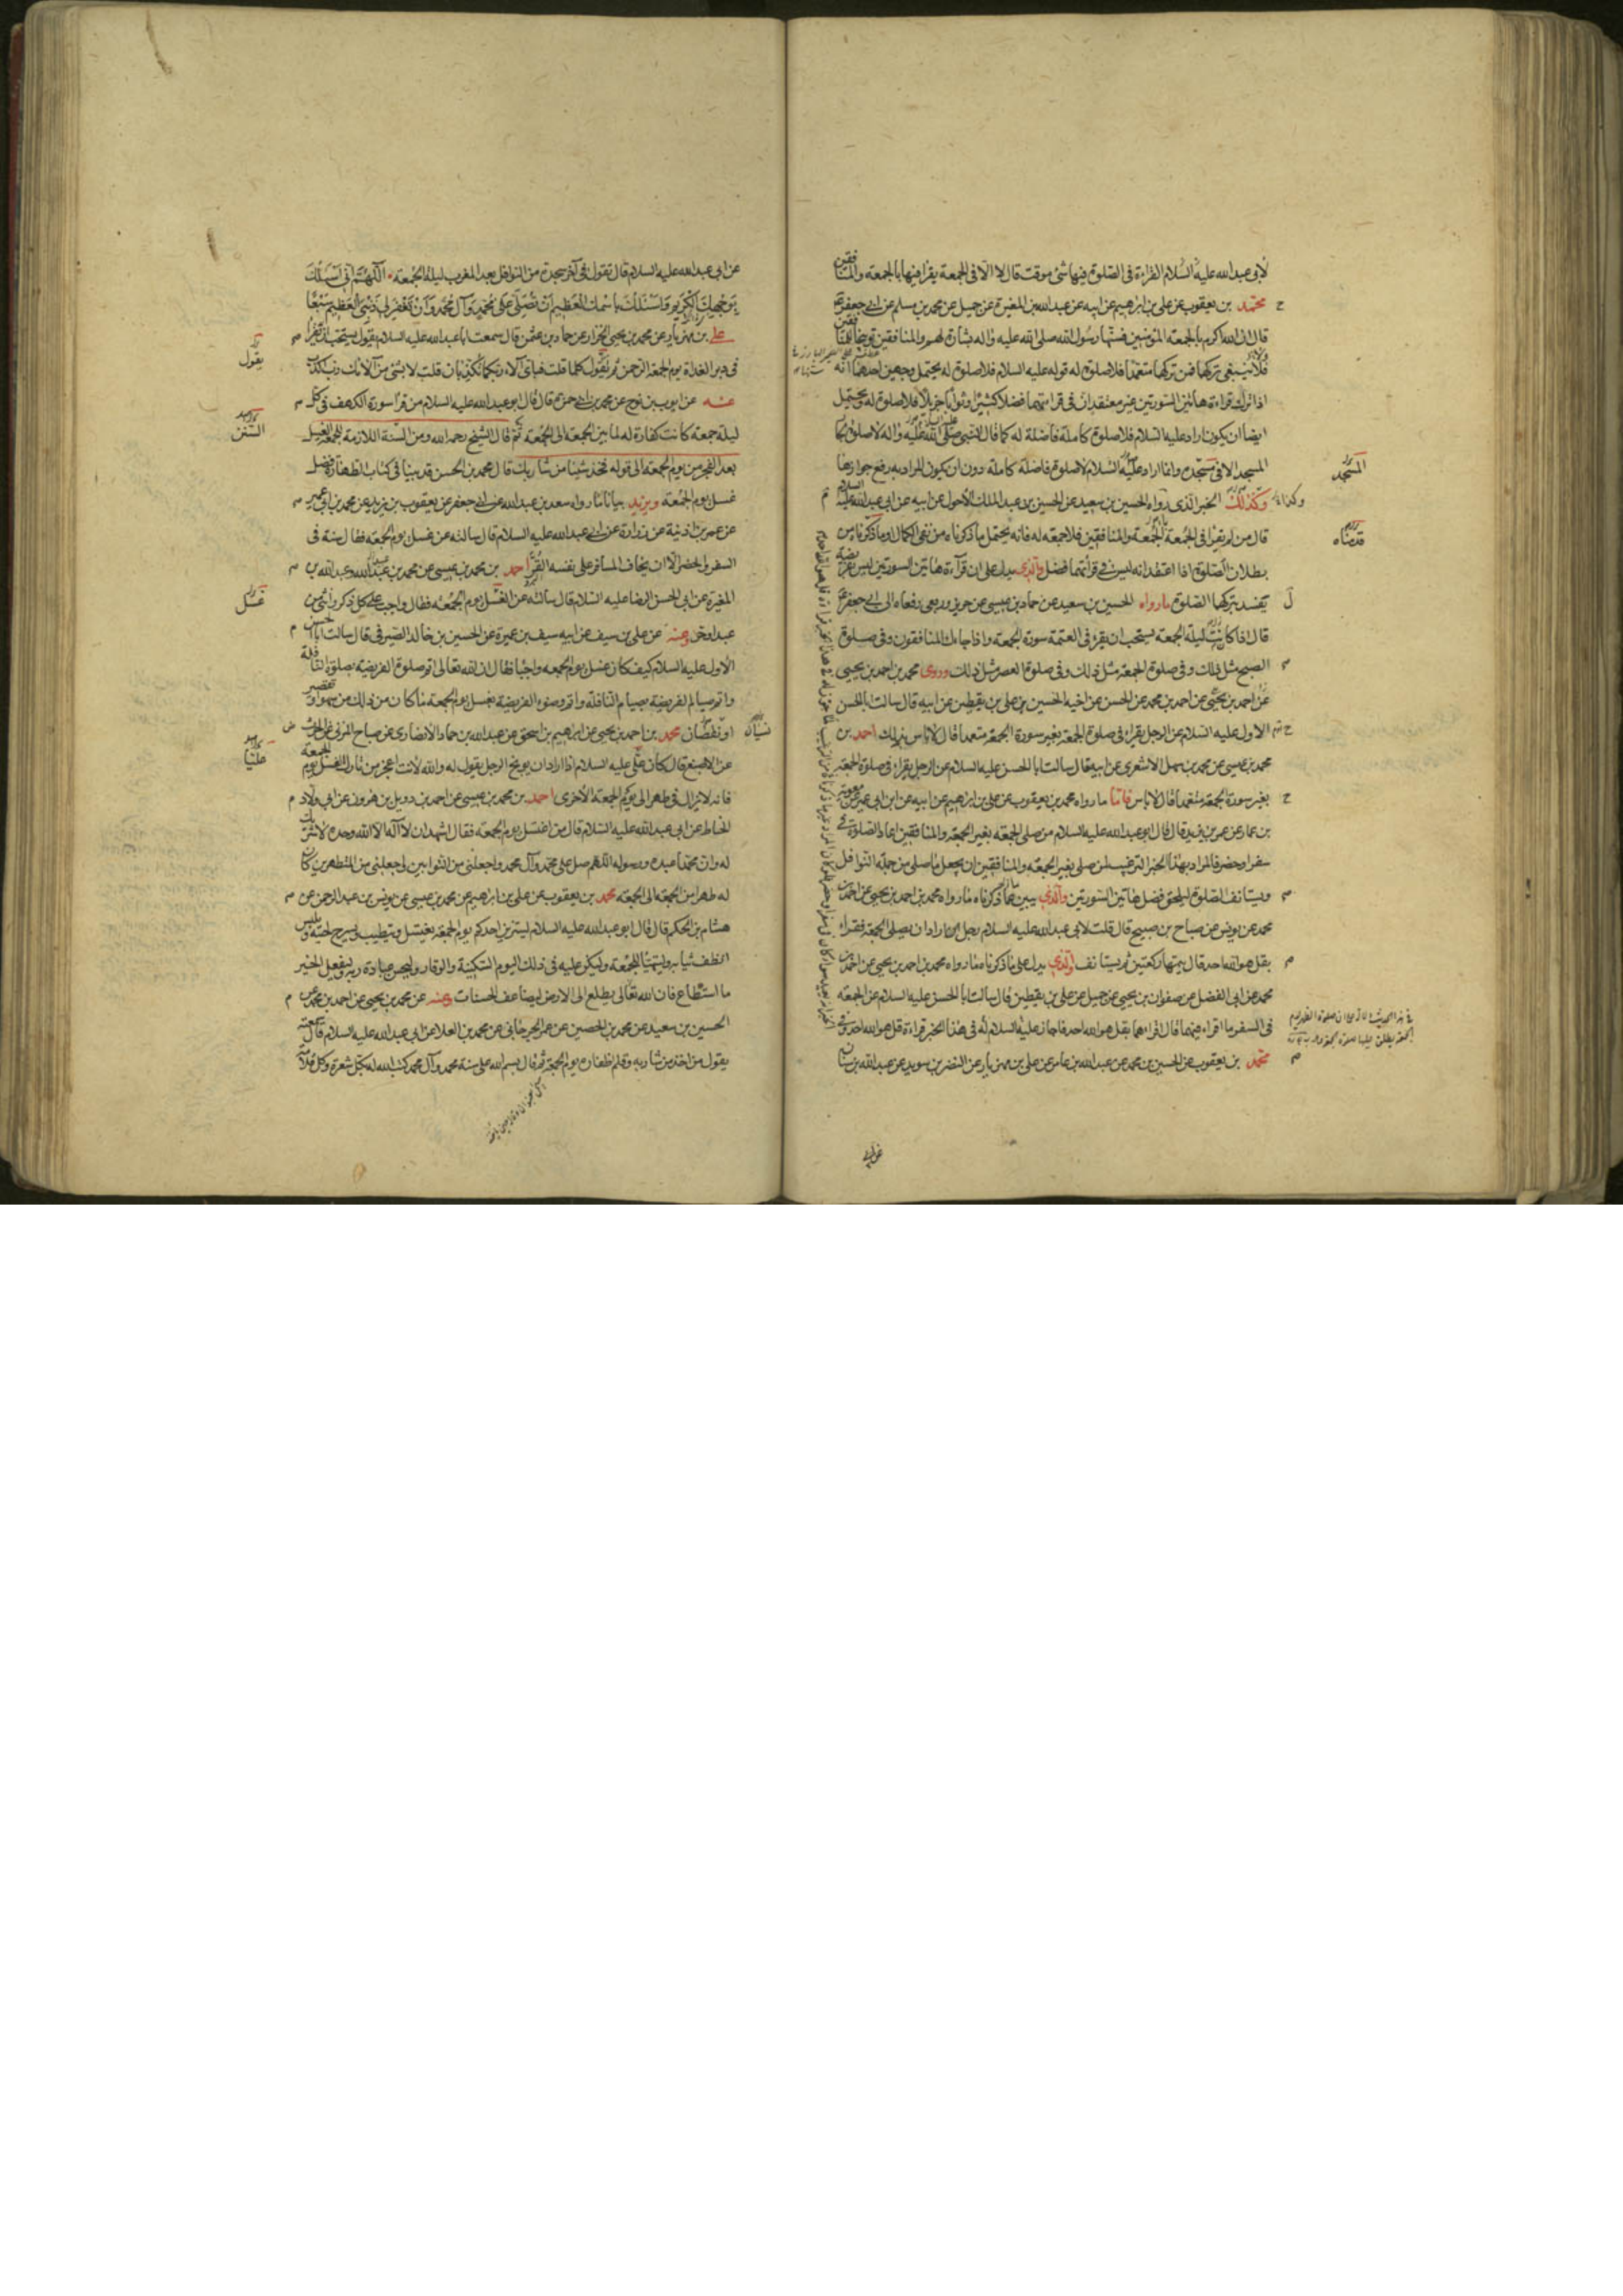 لابى عبدالله عليه السلام القراءة فى الصلوة فيها شئ موقت قال لا الا فى الجمعة يقرا فيها بالجمعة والمنافقين
محمد بن يعقوب عن على بن ابرهيم عن ابيه عن عبدالله بن المغيرة عن جميل عن محمد بن مسلم عن ابى جعفر ع
قال ان الله اكرم بالجمعة المؤمنين فسنها رسول الله صلى الله عليه واله بشارة لهم والمنافقين توبيخا للمنافقين
فلا ينبغى تركها فمن تركها متعمدا فلا صلوة له قوله عليه السلام فلا صلوة له يحتمل وجهين احدهما انه
اذا ترك قراءة هاتين السورتين غير معتقد ان فى قراءتهما فضلا كثيرا وثوابا جزيلا فلا صلوة له ويحتمل
ايضا ان يكون اراد عليه السلام فلا صلوة كاملة فاضلة له كما قال النبى صلى الله عليه واله لا صلوة لجار
المسجد الا فى مسجده وانما اراد عليه السلام لا صلوة فاضلة كاملة دون ان يكون المراد به رفع جوازها
وكذلك الخبر الذى رواه الحسين بن سعيد عن الحسين بن عبد الملك الاحول عن ابيه عن ابى عبدالله عليه السلام
قال من لم يقرا فى الجمعة بالجمعة والمنافقين فلا جمعة له فانه يحتمل ما ذكرناه من نفى الكمال او ما ذكرناه من
بطلان الصلوة اذا اعتقد انه ليس فى قرأتهما فضل والذى يدل على ان قرآءة هاتين السورتين ليس بفريضة
يفسد بتركها الصلوة ما رواه الحسين بن سعيد عن حماد بن عيسى عن حريز وربعى رفعاه الى ابى جعفر ع
قال اذا كانت ليلة الجمعة يستحب ان يقرء فى العتمة سورة الجمعة واذا جاءك المنافقون وفى صلوة
الصبح مثل ذلك وفى صلوة الجمعة مثل ذلك وفى صلوة العصر مثل ذلك وروى محمد بن احمد بن يحيى
عن احمد بن يحيى عن احمد بن محمد عن الحسن عن اخيه الحسين بن على بن يقطين عن ابيه قال سالت ابا الحسن
الاول عليه السلام عن الرجل يقراء فى صلوة الجمعة بغير سورة الجمعة متعمدا قال لا باس بذلك احمد بن
محمد بن عيسى عن محمد بن سهل الاشعرى عن ابيه قال سالت ابا الحسن عليه السلام عن الرجل يقراء فى صلوة الجمعة
بغير سورة الجمعة متعمدا قال لا باس فاما ما رواه محمد بن يعقوب عن على بن ابرهيم عن ابيه عن ابن ابى عمير عن معوية
بن عمار عن عمر بن يزيد قال قال ابو عبدالله عليه السلام من صلى الجمعة بغير الجمعة والمنافقين اعاد الصلوة فى
سفر او حضر فالمراد بهذا الخبر الترغيب لمن صلى بغير الجمعة والمنافقين ان يجعل ما صلى من جملة النوافل
ويستانف الصلوة ليلحق فضل هاتين السورتين والذى يبين ما ذكرناه ما رواه محمد بن احمد بن يحيى عن احمد بن
محمد عن يونس عن صباح بن صبيح قال قلت لابى عبدالله عليه السلام رجل اراد ان يصلى الجمعة فقراء
بقل هو الله احد قال يتمها ركعتين ثم يستانف والذى يدل على ما ذكرناه ما رواه محمد بن احمد بن يحيى عن احمد بن
محمد عن ابى الفضل عن صفوان بن يحيى عن جميل عن على بن يقطين قال سالت ابا الحسن عليه السلام عن الجمعة
فى السفر ما اقراء فيهما قال اقراءهما بقل هو الله احد فاجاز عليه السلام له فى هذا الخبر قراءة قل هو الله احد وفى
محمد بن يعقوب عن الحسين بن محمد عن عبدالله بن عامر عن على بن مهزيار عن النضر بن سويد عن عبدالله بن سنان
المسجد
وكذا
قدمناه
عن ابى
عن ابى عبدالله عليه السلام قال تقول فى آخر سجدة من النوافل بعد المغرب ليلة الجمعة اللهم انى اسئلك
بوجهك الكريم واسئلك باسمك العظيم ان تصلى على محمد وآل محمد وان تغفر لى ذنبى العظيم سبعا
على بن مهزيار عن محمد بن يحيى الخزاز عن حماد بن عثمن قال سمعت ابا عبدالله عليه السلام يقول يستحب ان تقرا
فى دبر الغداة يوم الجمعة الرحمن ثم تقول كلما قلت فباى آلاء ربكما تكذبان قلت لا بشئ من آلائك رب اكذب
عنه عن ايوب بن نوح عن محمد بن ابى حمزة قال قال ابو عبدالله عليه السلام من قرا سورة الكهف فى كل
ليلة جمعة كانت كفارة له لما بين الجمعة الى الجمعة ثم قال الشيخ رحمه الله ومن السنة اللازمة للجمعة الغسل
بعد الفجر من يوم الجمعة الى قوله تخذ شيئا من شاربك قال محمد بن الحسن قد بينا فى كتاب الطهارة فضل
غسل يوم الجمعة ويزيد بيانا ما رواه سعد بن عبدالله عن ابى جعفر عن يعقوب بن يزيد عن محمد بن ابى عمير
عن عمر بن اذينة عن زرارة عن ابى عبدالله عليه السلام قال سالته عن غسل يوم الجمعة فقال سنة فى
السفر والحضر الا ان يخاف المسافر على نفسه القر احمد بن محمد بن عيسى عن محمد بن عبدالله وعبدالله بن
المغيرة عن ابى الحسن الرضا عليه السلام قال سالته عن الغسل يوم الجمعة فقال واجب على كل ذكر وانثى من
عبد او حر وعنه عن على بن سيف عن ابيه سيف بن عميرة عن الحسين بن خالد الصيرفى قال سالت ابا الحسن
الاول عليه السلام كيف كان غسل يوم الجمعة واجبا فقال ان الله تعالى اتم صلوة الفريضة بصلوة النافلة
واتم صيام الفريضة بصيام النافلة واتم وضوء الفريضة بغسل يوم الجمعة ما كان من ذلك من سهو او تقصير
او نقصان محمد بن احمد بن يحيى عن ابرهيم بن اسحق عن عبدالله بن حماد الانصارى عن صباح المزنى عن الحرث
عن الاصبغ قال كان على عليه السلام اذا اراد ان يوبخ الرجل يقول له والله لانت اعجز من تارك الغسل يوم الجمعة
فانه لا يزال فى طهر الى يوم الجمعة الاخرى احمد بن محمد بن عيسى عن احمد بن دويل بن هرون عن ابى ولاد
الحناط عن ابى عبدالله عليه السلام قال من اغتسل يوم الجمعة فقال اشهد ان لا اله الا الله وحده لا شريك
له وان محمدا عبده ورسوله اللهم صل على محمد وآل محمد واجعلنى من التوابين واجعلنى من المتطهرين كان
له طهرا من الجمعة الى الجمعة محمد بن يعقوب عن على بن ابراهيم عن محمد بن عيسى عن يونس بن عبد الرحمن عن
هشام بن الحكم قال قال ابو عبدالله عليه السلام ليتزين احدكم يوم الجمعة يغتسل ويتطيب ويسرح لحيته ويلبس
انظف ثيابه وليتهيأ للجمعة وليكن عليه فى ذلك اليوم السكينة والوقار وليحسن عبادة ربه وليفعل الخير
ما استطاع فان الله تعالى يطلع الى الارض ليضاعف الحسنات وعنه عن محمد بن يحيى عن احمد بن محمد عن
الحسين بن سعيد عن محمد بن الحصين عن عمر الجرجانى عن محمد بن العلا عن ابى عبدالله عليه السلام قال سمعته
يقول من اخذ من شاربه وقلم اظفاره يوم الجمعة ثم قال بسم الله على سنة محمد وآل محمد كتب الله له بكل شعرة وكل قلامة
يقول
السنن
غسل
نسيان
عليا